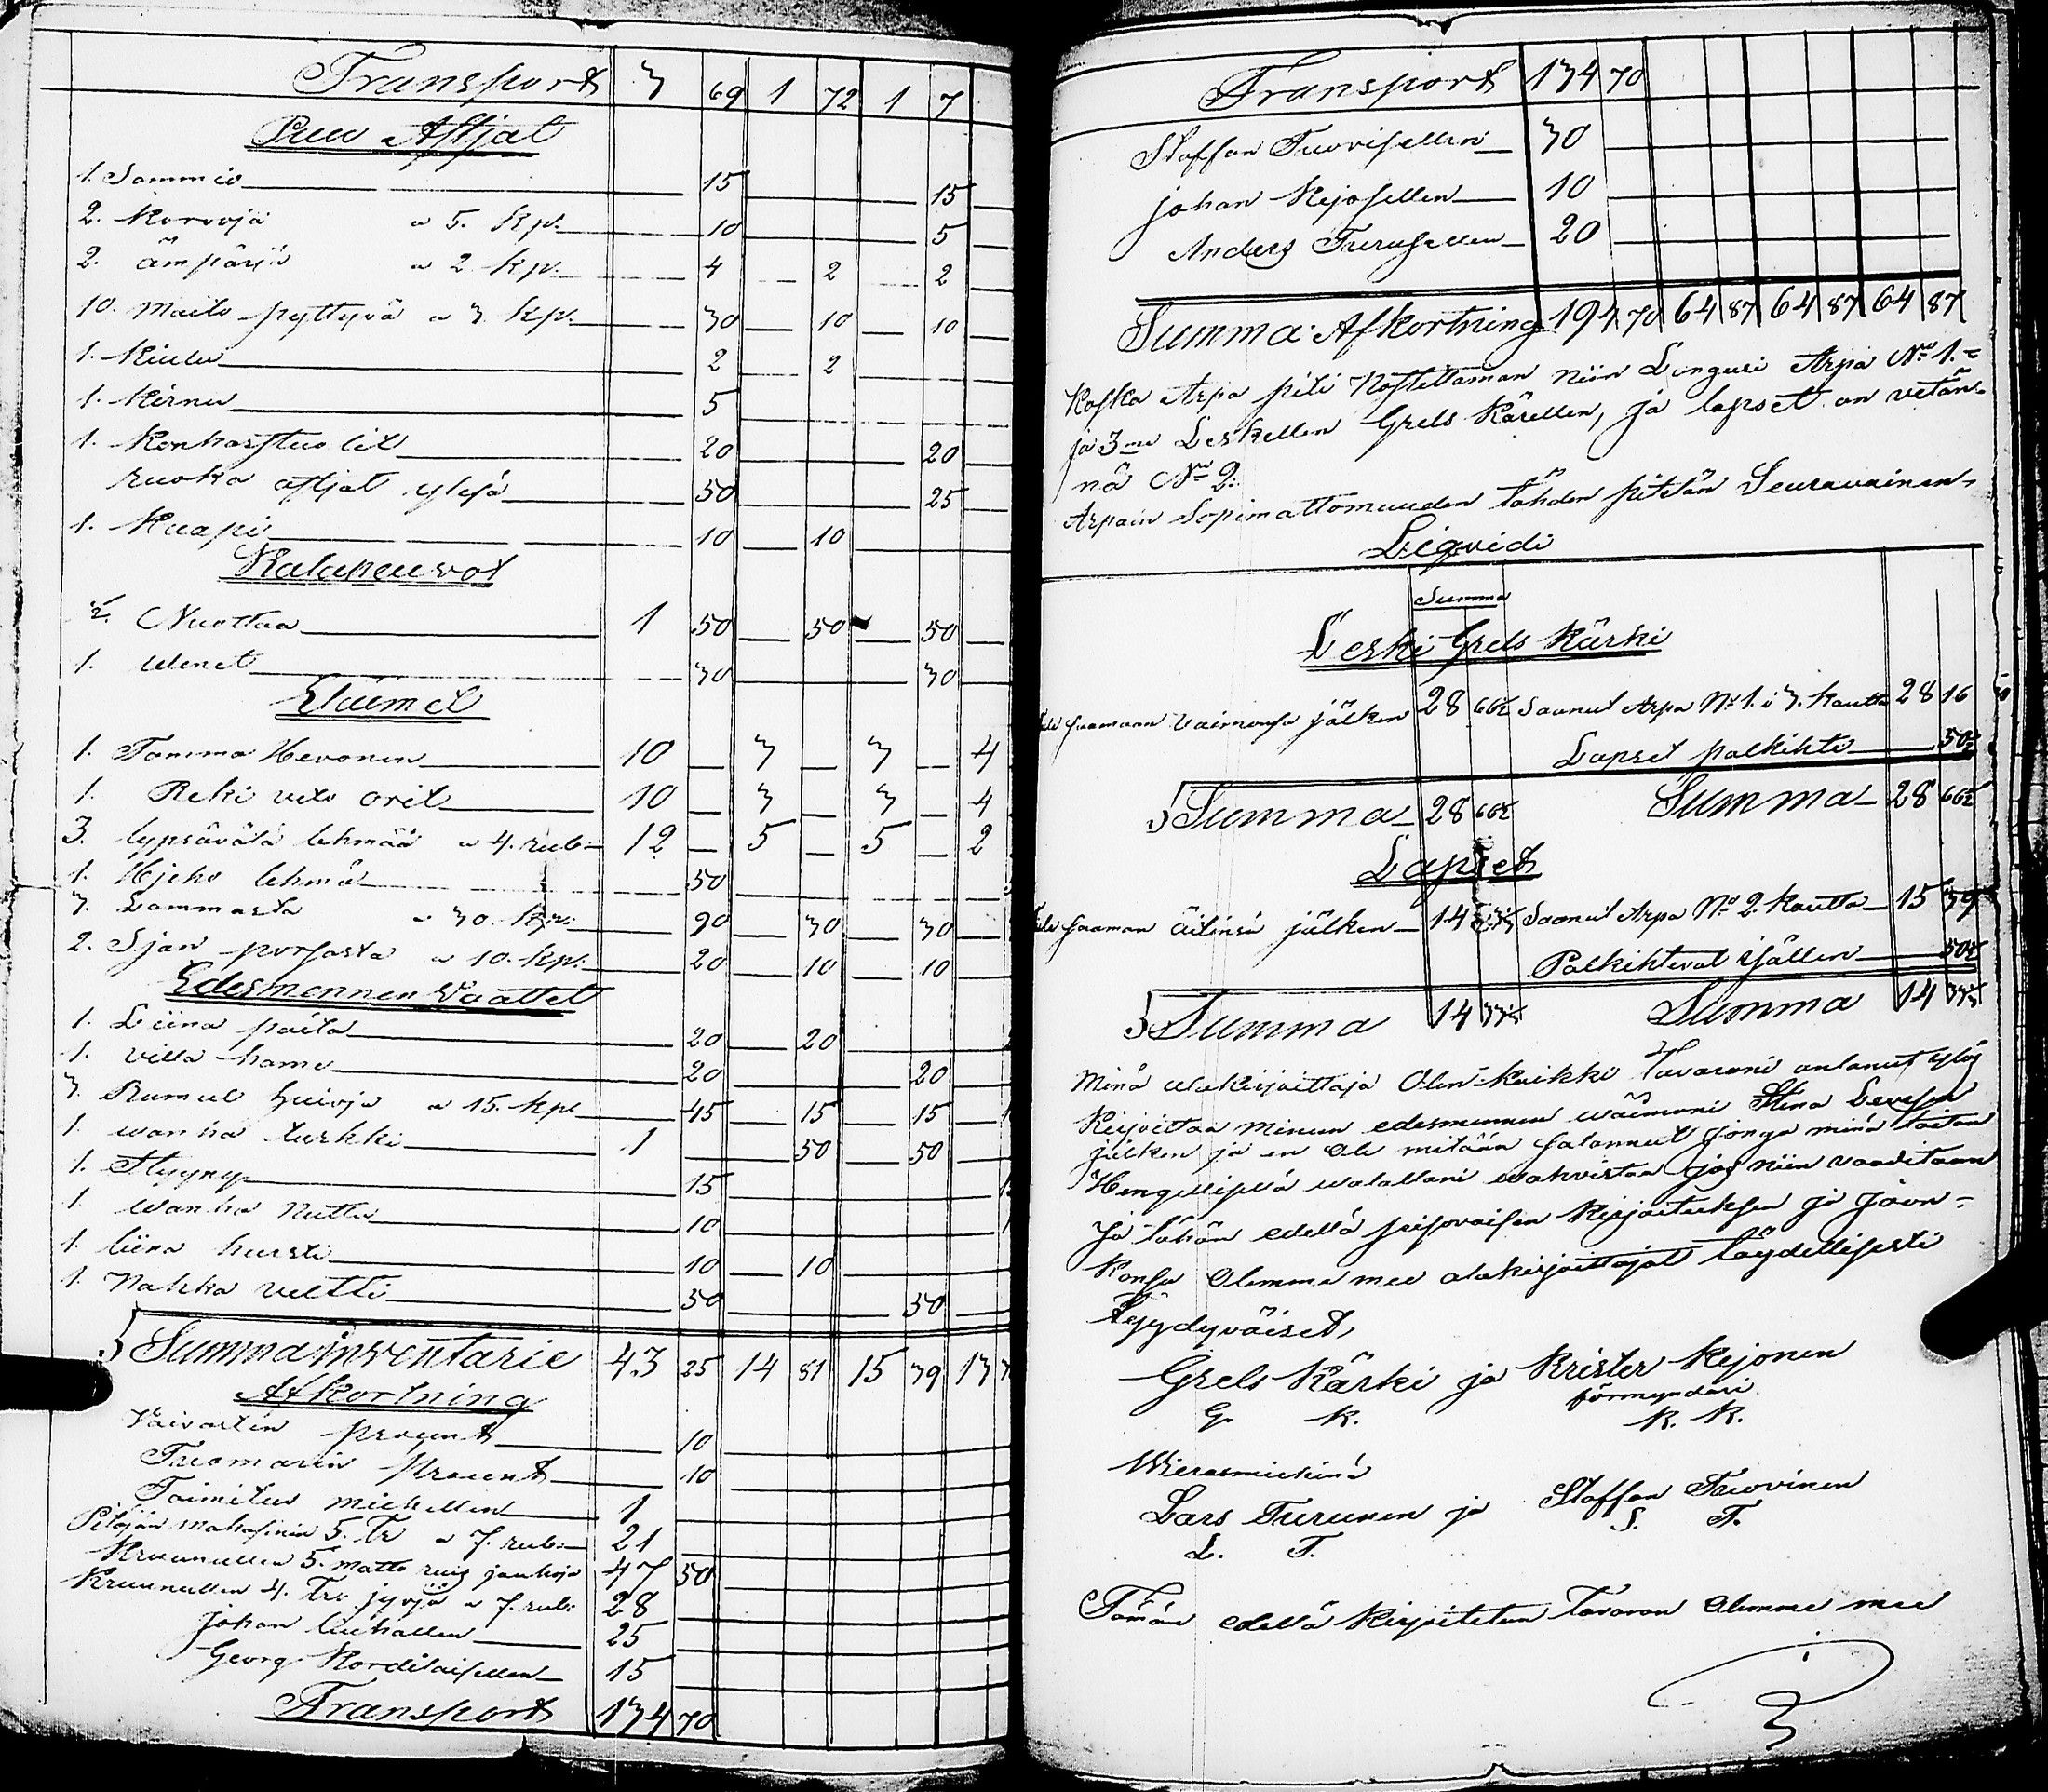 Transport 3 69 1 72 1 7
Puu Astjat
1. Sammio 15 15
2. Korvoja a 5. kp. 10 5
2. ämpäriä a 2 kp. 4 2 2
10. Maito pyttyvä a 3. kp. 30 10 10
1. Kiulu 2 2
1. Kirnu 5
1. Kenkarstuolit 20 20
ruoka astjat ylesä 50 25
1. Kuapi 10 10
Kalaneuvot
½. Nuottaa 1 50 50 50
1. Wenet 30 30
Eläimet
1. Tamma Hevonen 10 3 3 4
1. Reki veto orit 10 3 3 4
3. lypsävätä lehmää a 4. rub: 12 5 5 2
1. Hjeho lehmä 50
3. Lammasta a 30. kp: 90 30 30
2. Sjan porsasta a 10. kp. 20 10 10
Edesmennen Vaattet
1. Liina paita 20 20
1. villa hame 20 20
3. Rumul huivja a 15. kp. 45 15 15
1. wanha turkki 1 50 50
1. Ttyyny 15
1. wanha nuttu 10
1. liina hursti 10 10
1. Nahka veltti 50 50
Summa inventarie 43 25 14 81 15 39 13
Afkortning
Vaivastin procent 10
Tuomarin Procent 10
Toimitus miehellen 1
Pitäjän makasinin 5. Tr a 7. rub: 21
Kruunullen 5. matto ruis jauhoja 47 50
Kruunullen 4. Tr: jyvjä a 7. rub: 28
Johan liuhallen 25
Georg Korditaisellen 15
Transport 134 70
Transport 134 70
Staffan Tuovisellen 30
Johan Kejosellen 10
Anders Turusellen 20
Summa Afkortning 194 70 64 87 64 87 64 87
Koska Arpa piti Nostettaman niin Lunguri Arpa No 1. =
ja 3me Leskellen Grels Kärellen, ja lapset on vetän-
nä No 2:
Arpain Sopimattomuuden tähden pitetän Seuravainen
Liqvidi
Summa
Leski Grels Kärki
saamaan vaimonsa jälken 28 66½ Saanut Arpa No 1. i 3. kautta 28 16
Lapset palkihti 50½
Summa 28 66½ Summa 28 66½
Lapset
saaman äitinsä jälken 14 33½ Saanut Arpa No 2. kautta 15 39
Palkihtevat isällen 50½
Summa 14 33½ Summa 14 33½
Minä alakirjoittaja Olen kaikki tavarani antanut ylös
Kirjoittaa minun edesmennen waimoni Stina Levesen
jälken ja en Ole mitään salannut jonga minä taitan
Hengellisellä walallani wahvistaa jos niin vaaditaan
Ja tähän edellä seisovaisen Kirjoituksen ja Jaon-
Kansa Olemme mee alakirjoittajat täydellisesti
tyydyväiset,
Grels Kärki ja Krister Kejonen
förmyndäri
G. K. K. K.
Wierasmiehinä
Lars Turunen ja Staffan Tuovinen
L. T. S. T.
Tämän edellä kirjoitetun tavaran Olemme mee